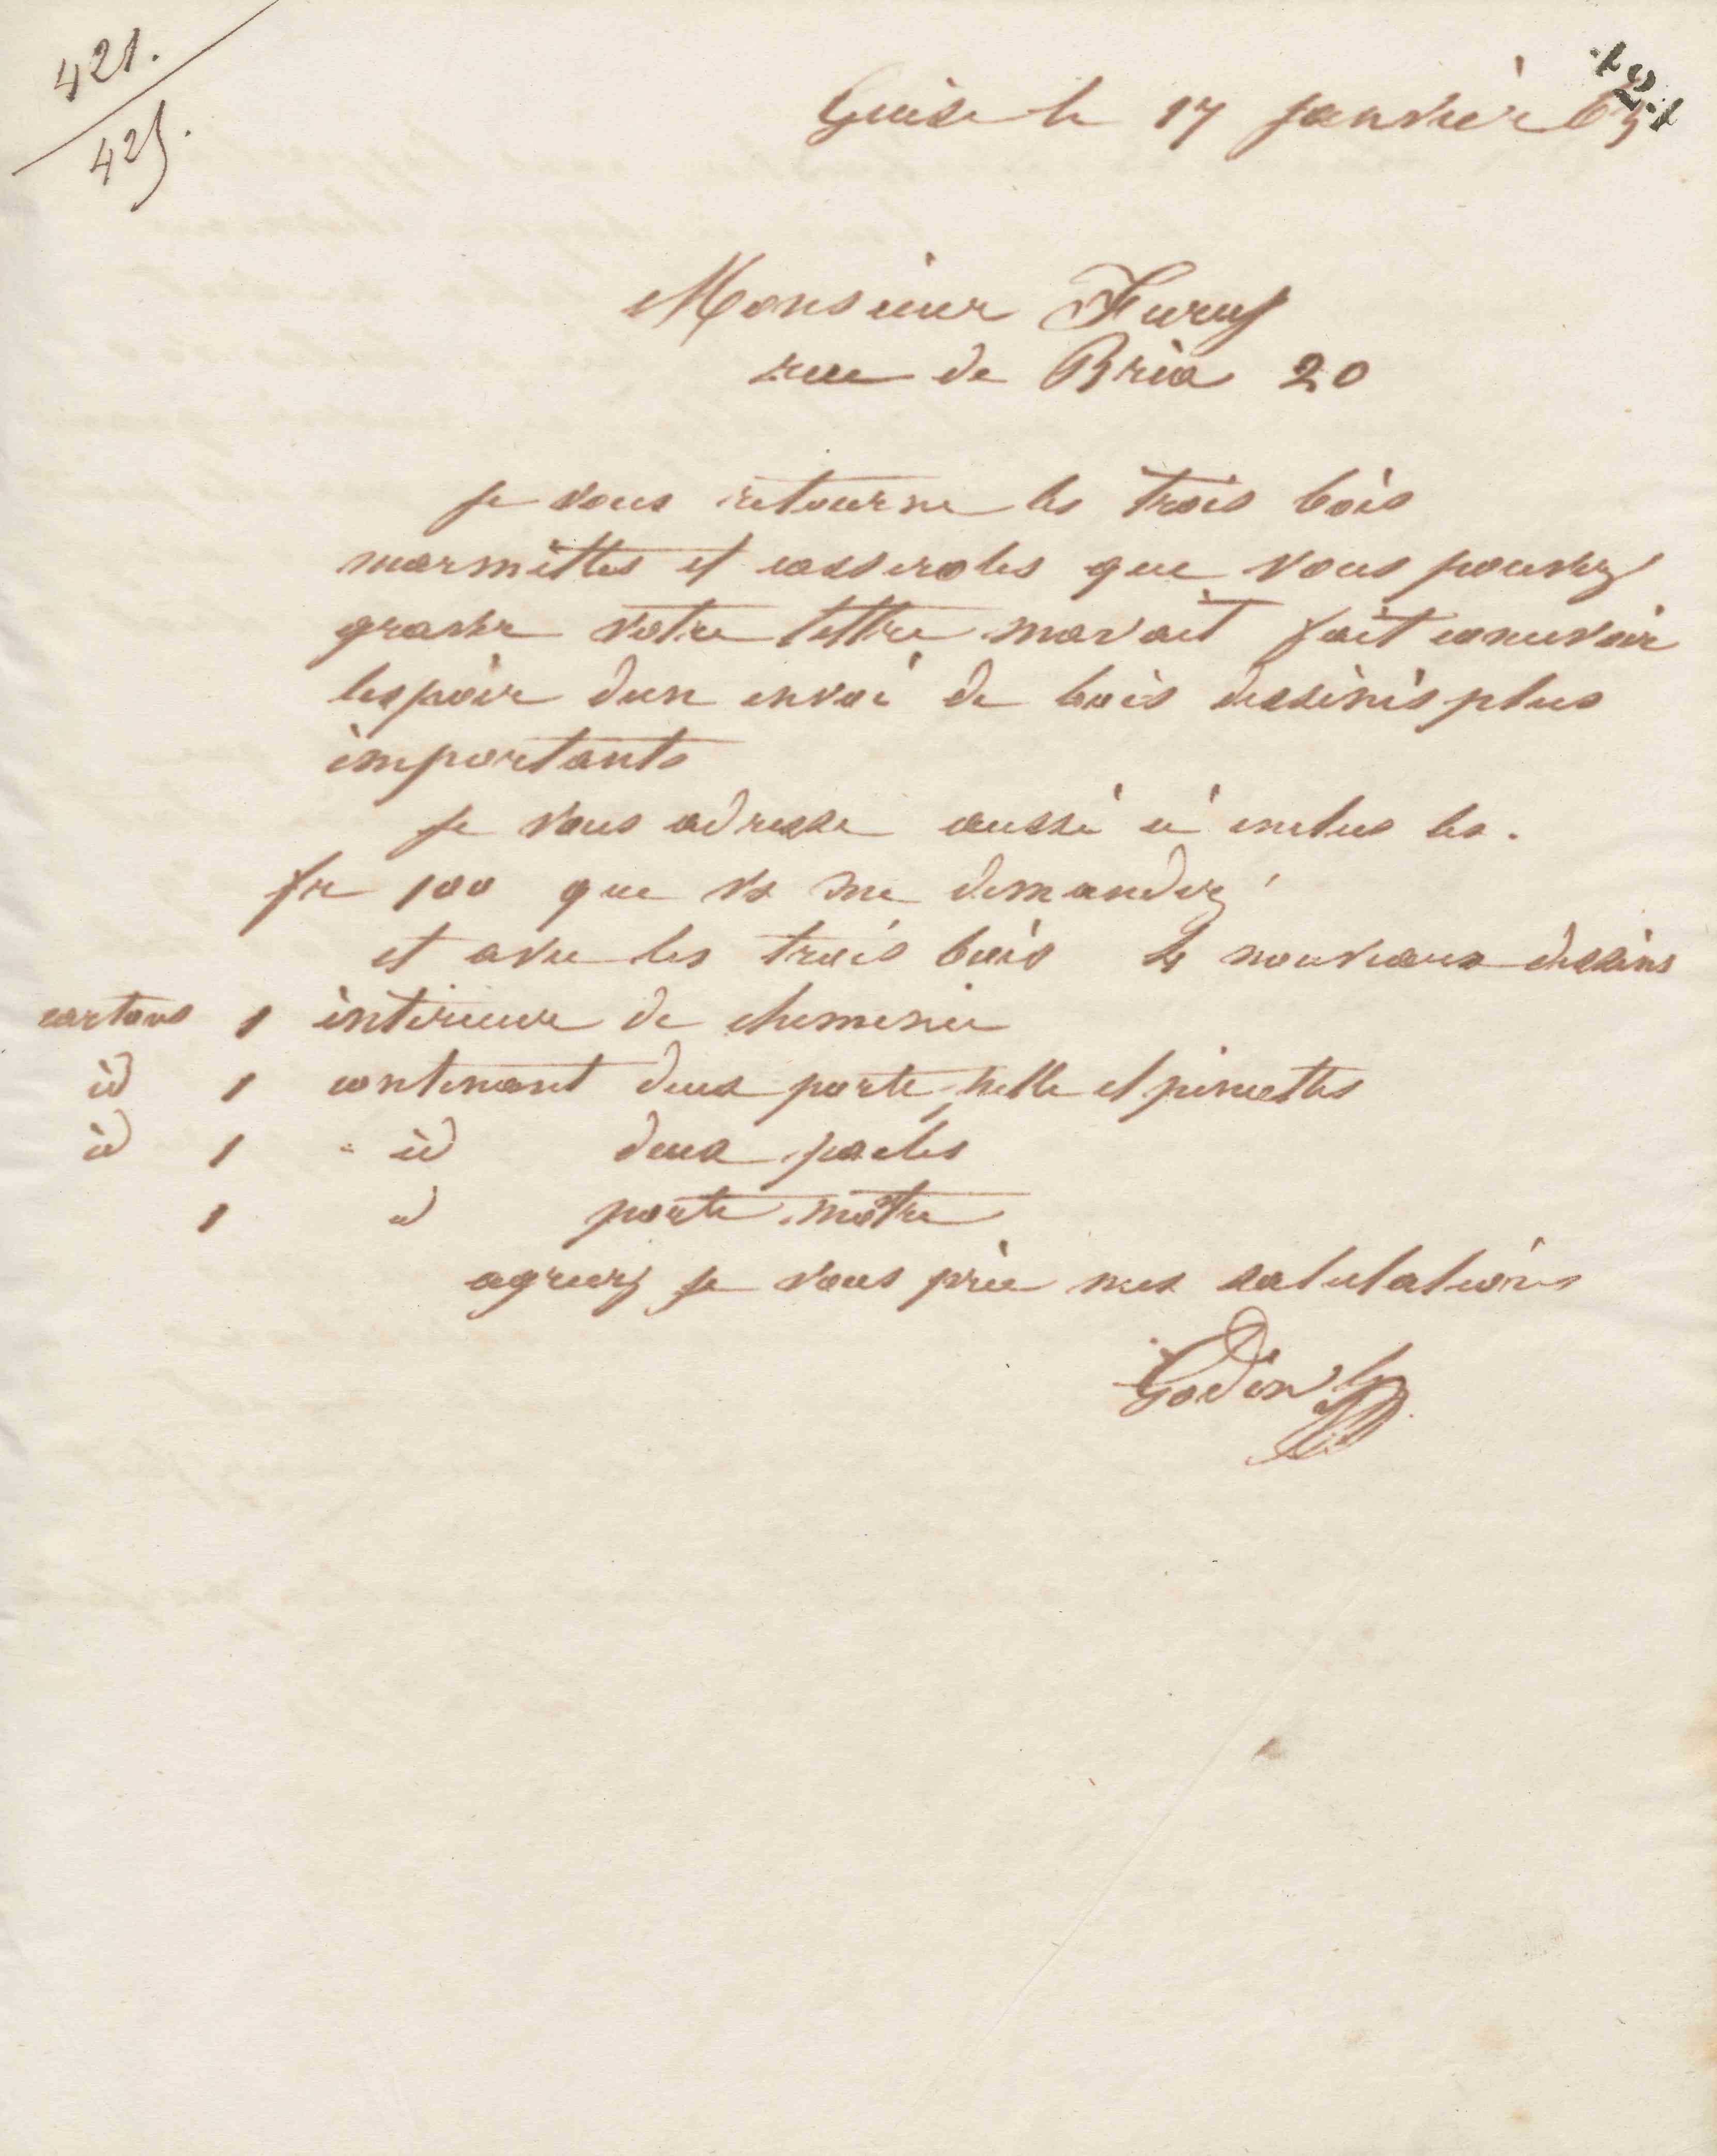 421.
425.
421
Guise le 17 janvier 65
Monsieur
rue de Bréa 20
je vous retourne les trois bois
marmittes et casseroles que vous pouvez
graver votre lettre mavait fait concevoir
lespoir dun envoi de bois dessinés plus
importants
je vous adresse aussi ci inclus les.
fr 100 que vs me demandez
et avec les trois bois 4 nouveaux dessins
cartons 1 intérieur de cheminée
id 1 contenant deux porte pelle et pincettes
id 1 id deux poeles
1 id porte montre
agreez je vous prie mes salutations
Godin